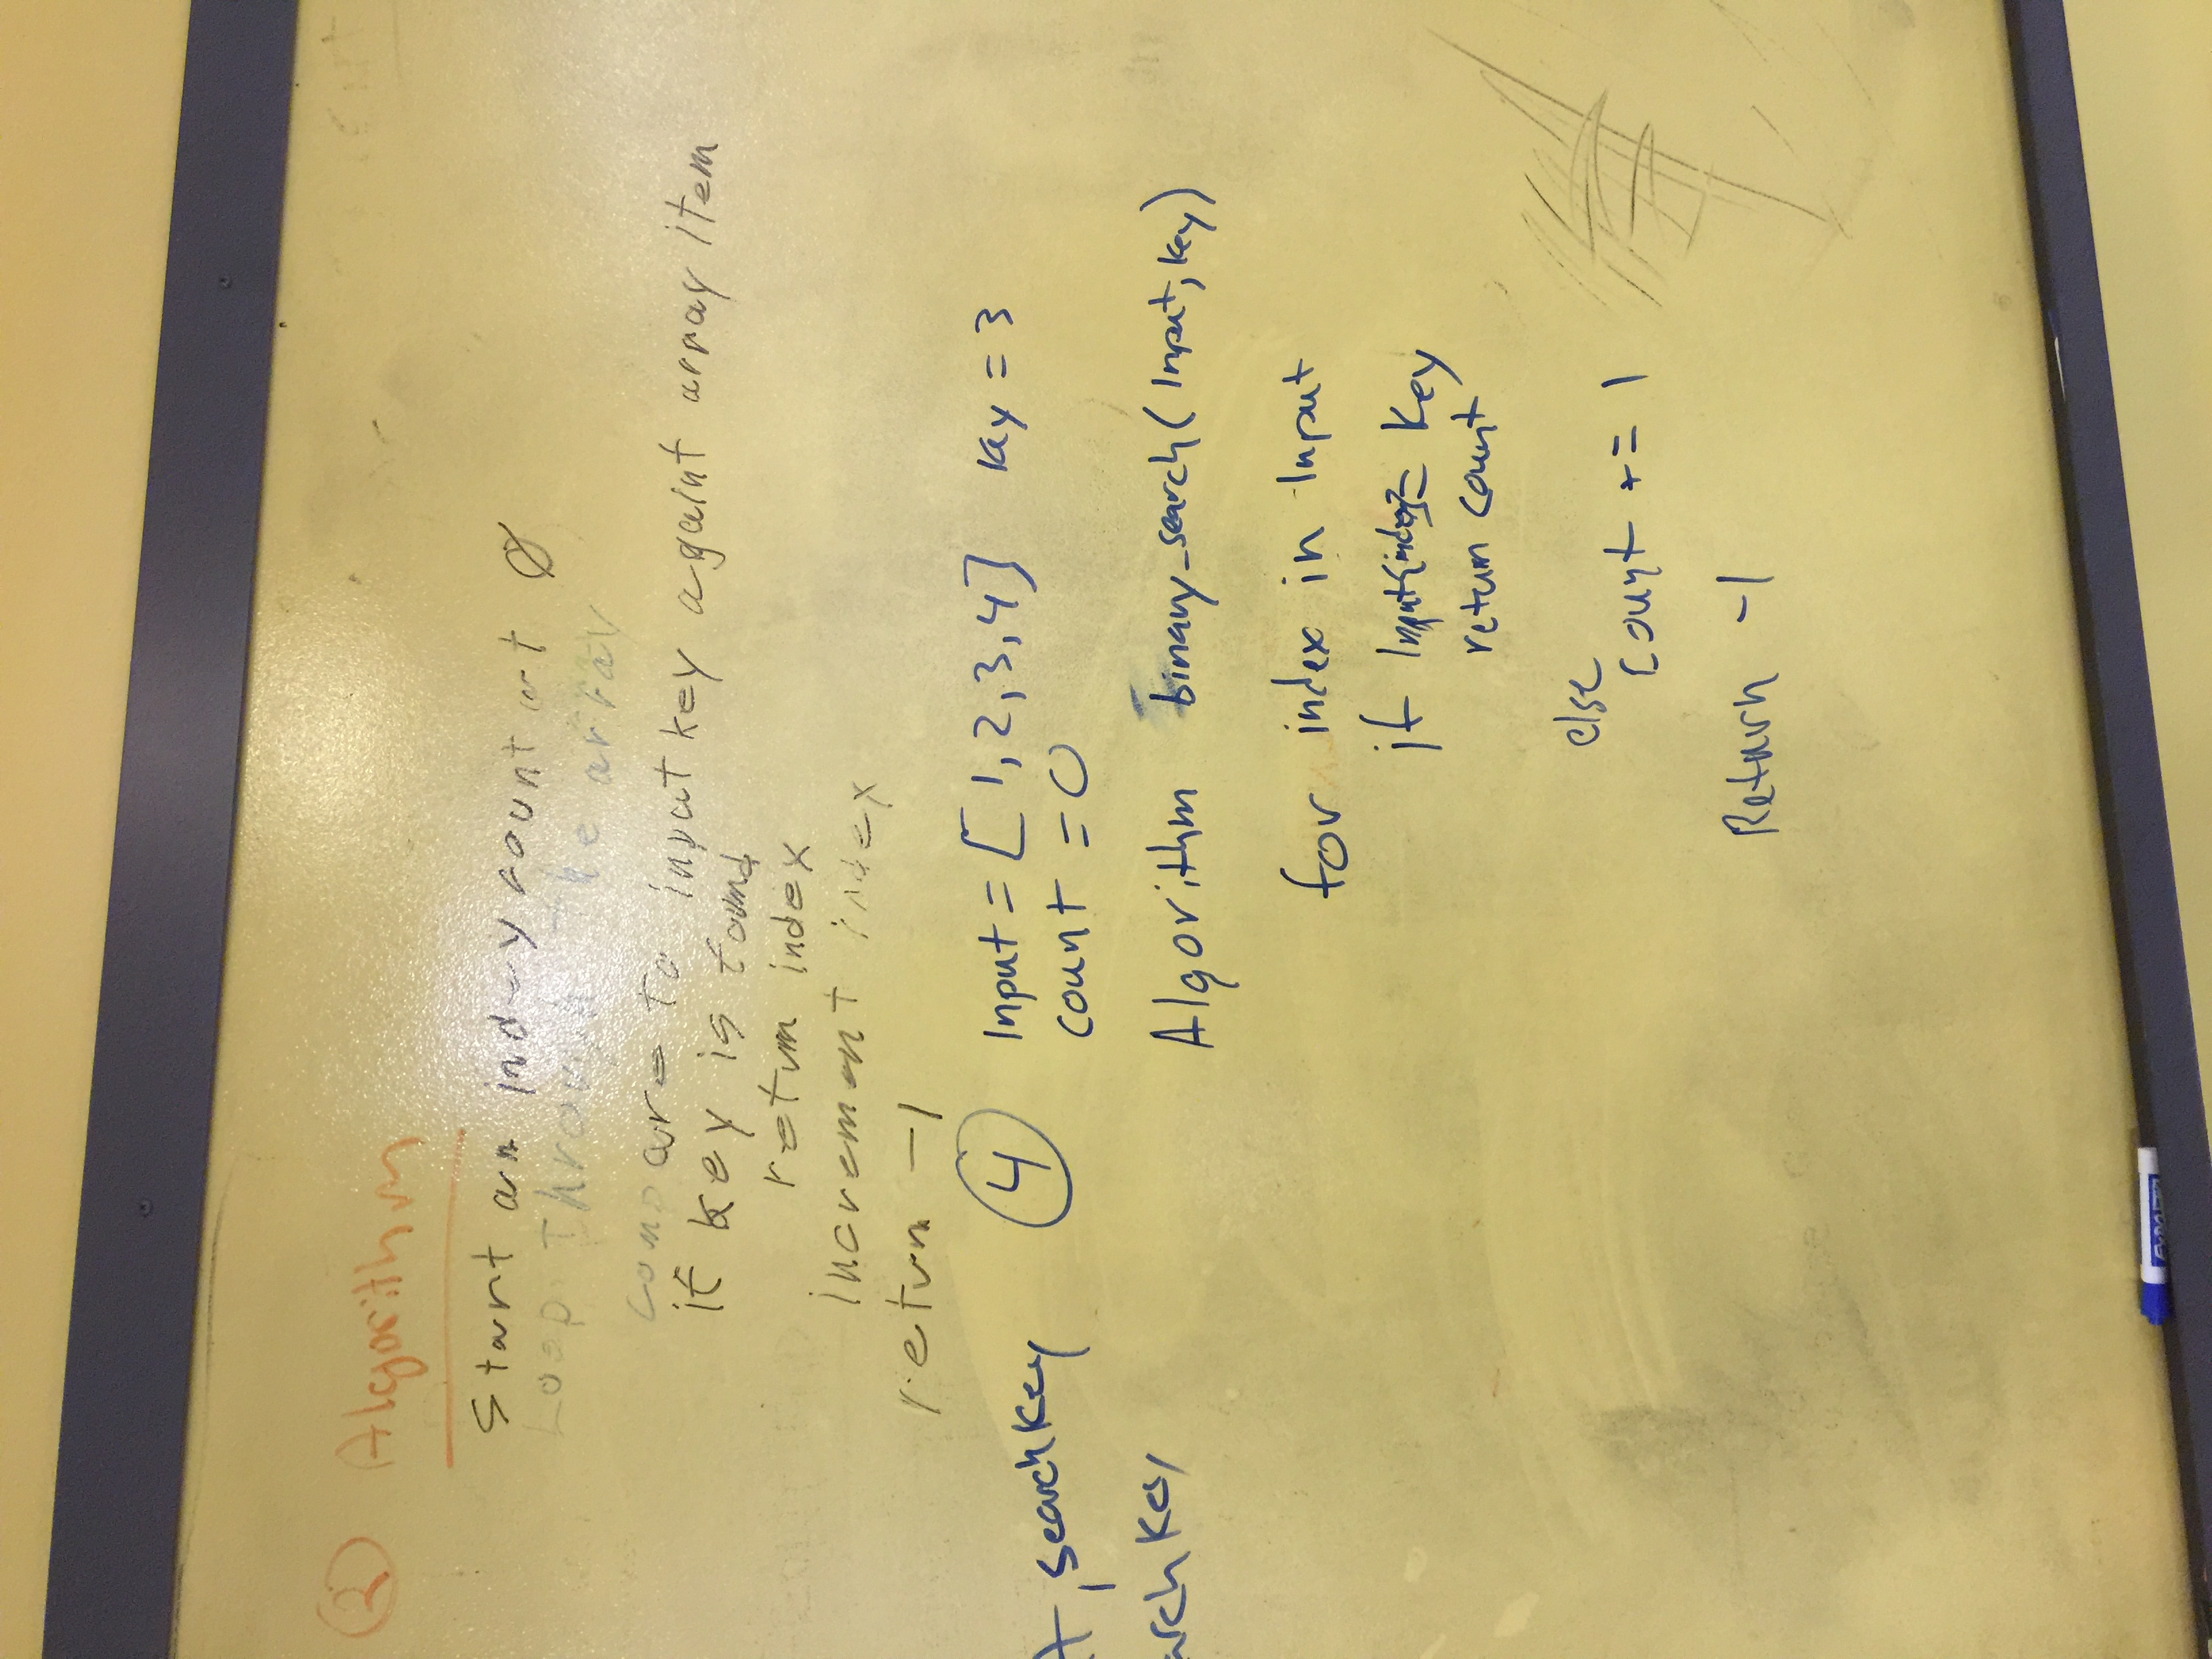 2 Algorithm
Start an index count at 0
Loop Through the array
compare to input key againt array item
if key is found
return index
increment index
return -1
4 Input = [1,2,3,4] key = 3
, searchKey
count = 0
Key
Algorithm binary_search(Input, key)
for index in Input
if Input[index] = Key
return count
else
count += 1
Return -1
EXPO